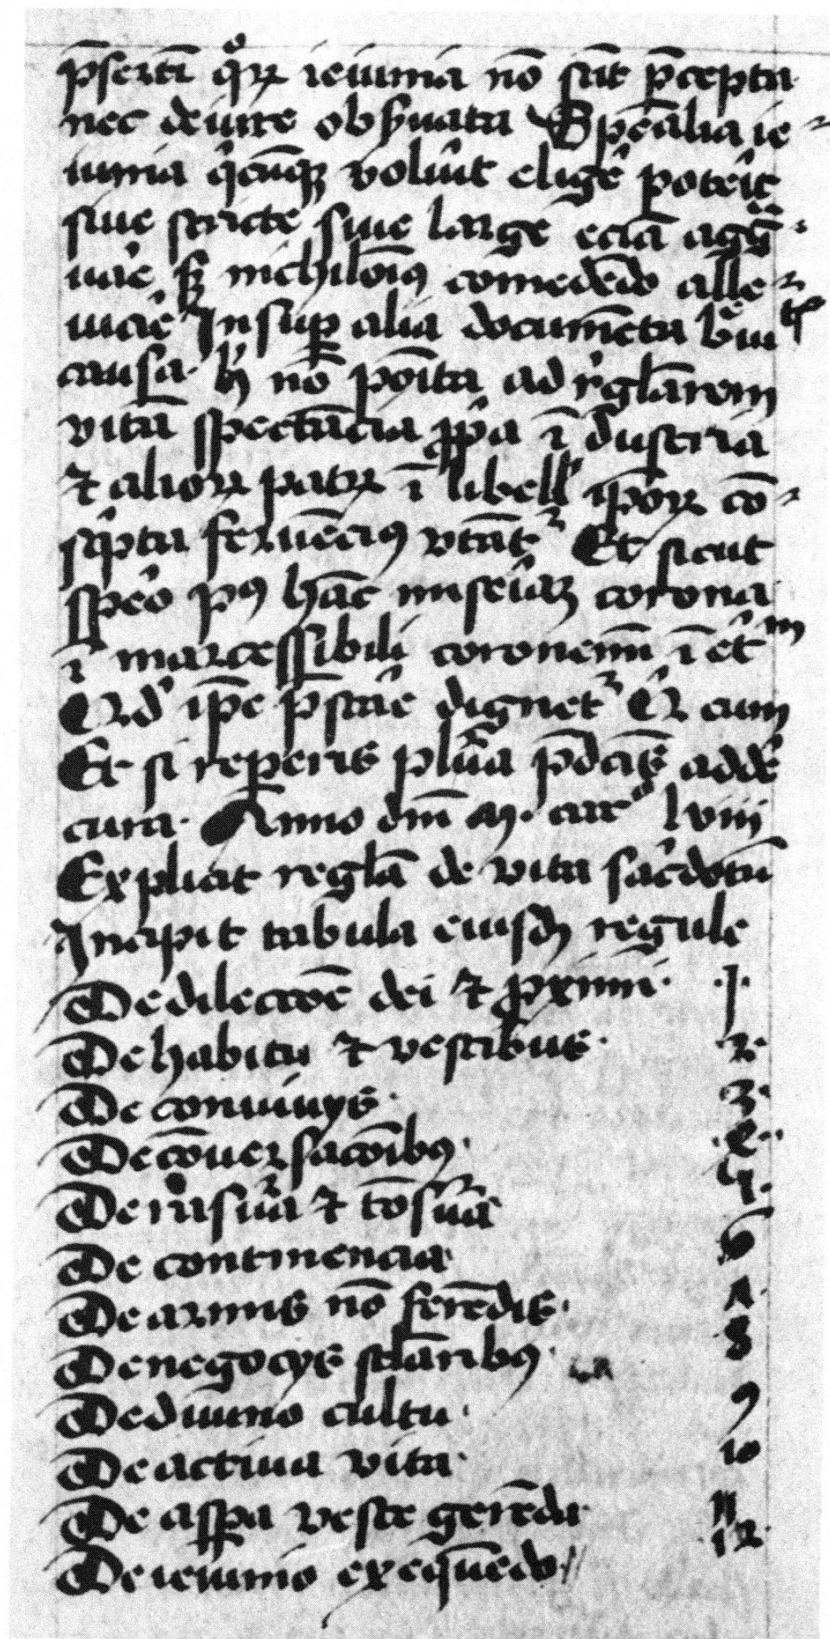 p̄sertī qͦꝝ ieiunia nō sūt p̄cepta
nec de iure obẜuata Sp̄ealia ie
iunia q̄cūqꝫ volūit elige͛ pote͛it
siue stricte siue large eciā agg̃
uāe ẜꝫ nichilōīꝰ comedēdo alle
uiāe Insuꝑ alia documēta bͤuitͭⁱˢ
causa· hͥ nō pōīta ad rͥglārem
vitā spectācia ꝓp̄a ī
⁊ alioꝝ patꝝ ī libell' ip̄oꝝ cō
sc̓pta feruēciꝰ vtātͬ Et sicut
spe͛o pꝰ hāc mise͛iāꝫ corona
ī marcessibili coronemͬ ī et̓ͫ
Qd' ip̄e p̄stāe dignetͬ Qͥ cum
Et si reperis plūa p̄dc̄is adde͛
cura· Anno dnī M· cccͨͦ lviij
Explicit reglā de vita sac̓dotū
Incipit tabula eiusdꝫ regule
De dilectōē dei ⁊ ꝓximi· ·I·
De habitu ⁊ vestibus· ·2·
De conuiuijs· 3·
De cōuersacōībꝰ· ·ꝝ·
De rasūa ⁊ tōsūa 4·
De continencia 6
De armis nō ferēdis· ꓥ
De negocijs sclārībꝰ· 8
De diuino cultu· 9
De actiua vita· 10
De aspa veste gerēda· 11
De ieiunio exequēdo· 12·